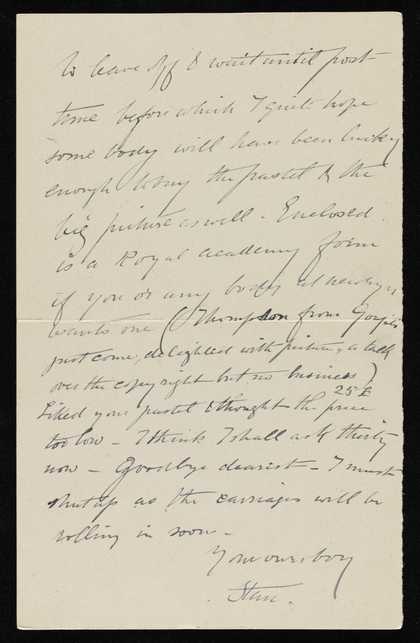 to leave off & wait until post
time before which I quite hope
some body will have been lucky
enough to buy the pastel & the
big picture as well - Enclosed
is a Royal academy form
if you or any body at newlyn
wants one (Thompson from Goupils
just come, delighted with picture, a talk
over the copyright but no business)
25£
liked your pastel & thought the price
too low - I think I shall ask thirty
now - Goodbye dearest - I must
shut up as the carriages will be
rolling in soon -
Your own boy
Stan.